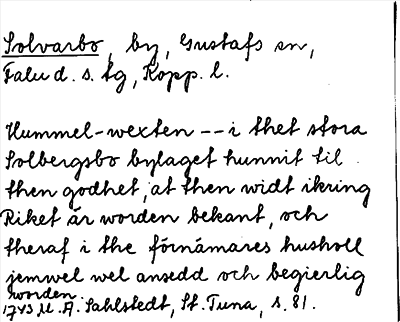 Solvarbo, by, Gustafs sn,
Falu d. s. tg, Kopp. l.
Hummel-wexten -- i thet stora
Solbergsbo bylaget hunnit til
then godhet, at then widt ikring
Riket är worden bekant, och
theraf i the förnämares husholl
jemwel wel ansedd och begierlig
worden.
1743 M. A. Sahlstedt, St. Tuna, s. 81.